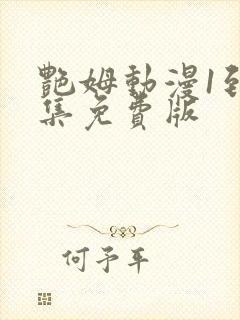 艷姆動漫1到
集免費版
何予平